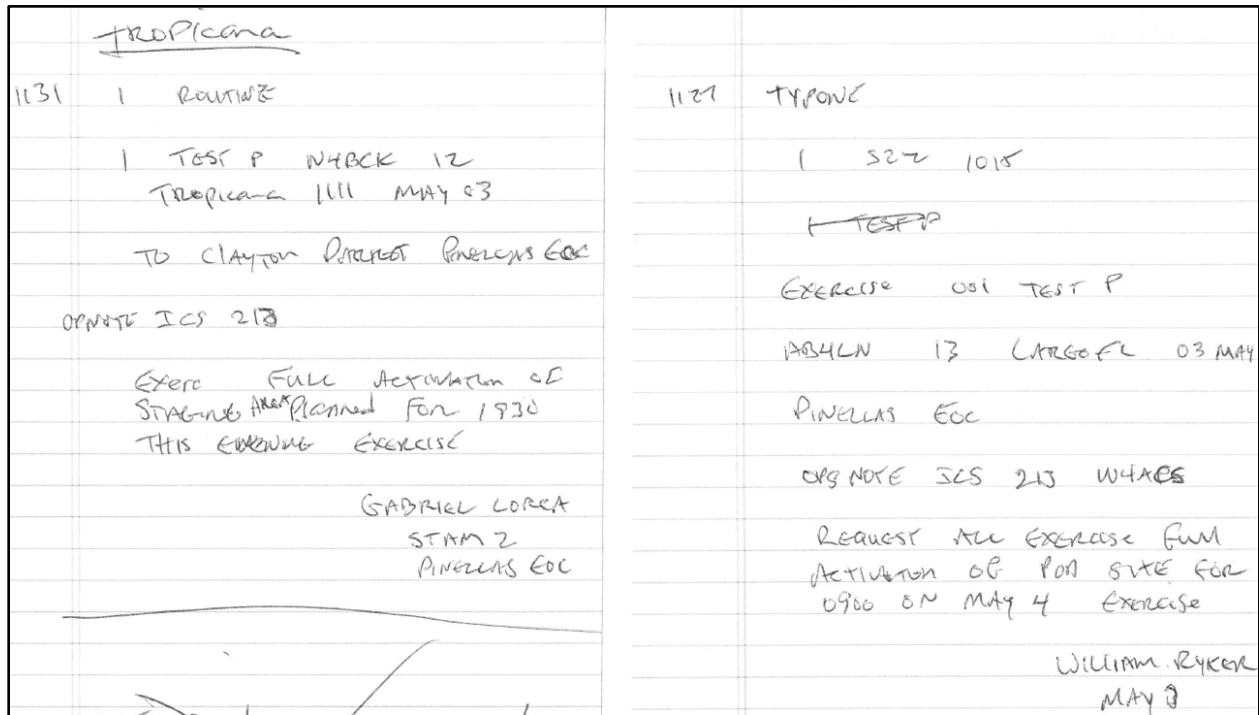 TROPicana
1131 1 ROUTINE
1 TEST P N4BCK 12
TROPicana 1111 MAY 03
TO CLAYTON PINELLAS EOC
OPNOTE ICS 213
Exerc FULL ACTIVATION OF
STAGING AREA Planned FOR 1930
THIS EVENING EXERCISE
GABRIEL LORCA
STAM 2
PINELLAS EOC
1127 TYPONE
1 522 1015
1 TEST P
EXERCISE 001 TEST P
AB4LN 13 LARGO FL 03 MAY
PINELLAS EOC
OPS NOTE ICS 213 W4AES
REQUEST ALL EXERCISE FULL
ACTIVATION OF POD SITE FOR
0900 ON MAY 4 EXERCISE
WILLIAM RYKER
MAY 3